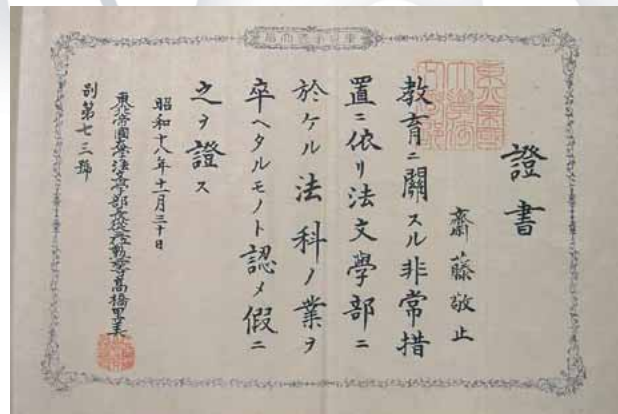 證書
齋藤敬止
教育ニ關スル非常措
置ニ依リ法文學部ニ
於ケル法科ノ業ヲ
卒ヘタルモノト認メ假ニ
之ヲ證ス
昭和十八年十一月三十日
東北帝國大學法文學部長從三位勲二等高橋里美
別第七三號